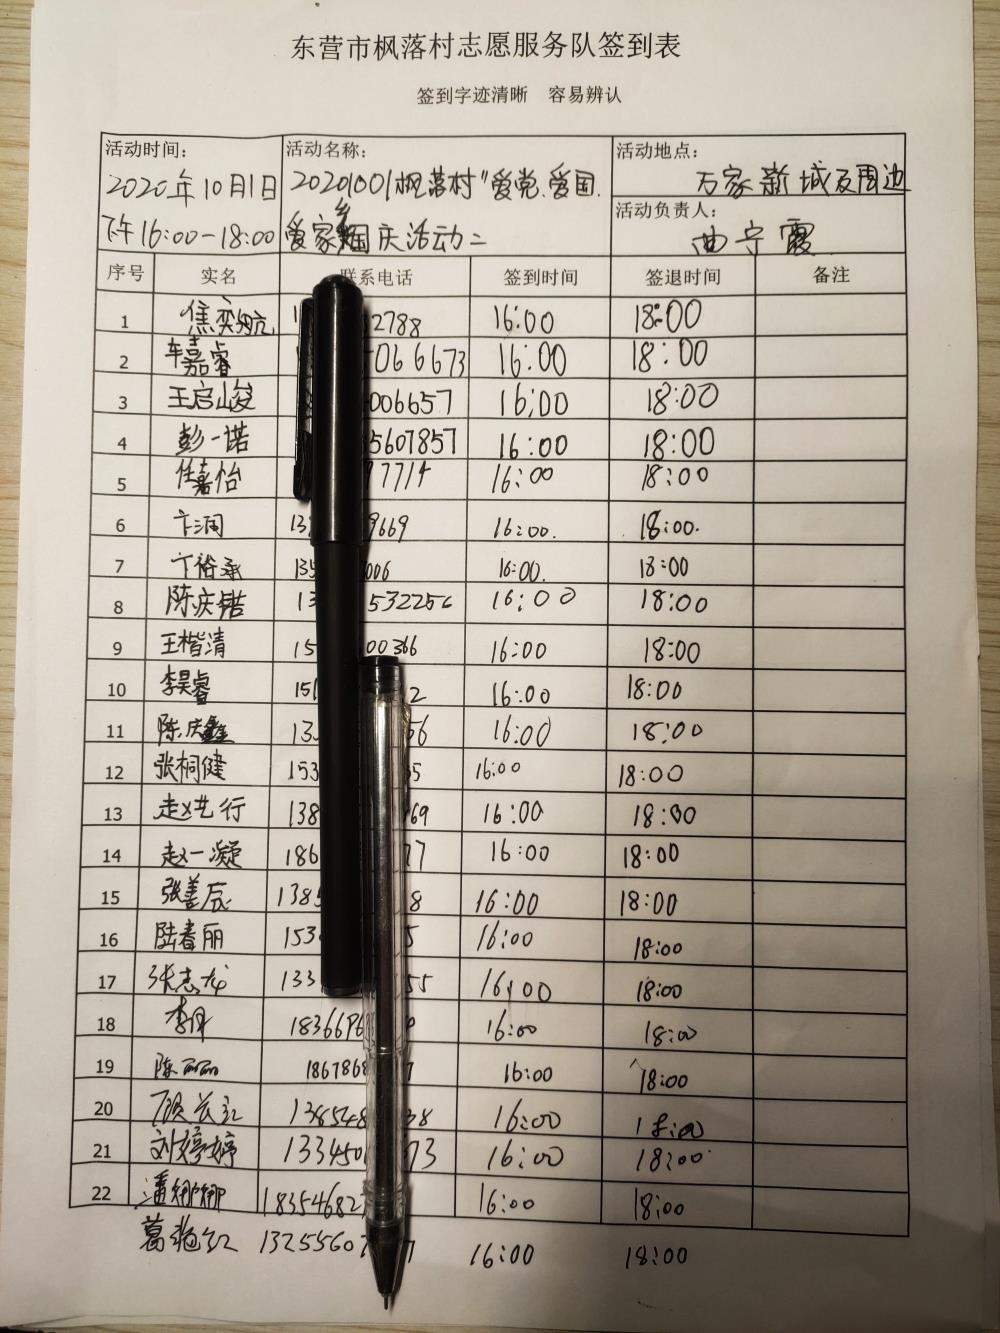 东营市枫落村志愿服务队签到表
签到字迹清晰 容易辨认
活动时间: 活动名称: 活动地点:
2020年10月1日 20201001枫落村"爱党、爱国. 万家新城及周边
下午16:00-18:00 爱家乡国庆活动二 活动负责人: 曲宁霞
序号 实名 联系电话 签到时间 签退时间 备注
1 焦奕航 2788 16:00 18:00
2 车嘉睿 066673 16:00 18:00
3 王启山 006657 16:00 18:00
4 彭一诺 5607857 16:00 18:00
5 任嘉怡 7714 16:00 18:00
6 卞润 13 9669 16:00. 18:00.
7 卞裕承 135 006 16:00. 18:00
8 陈庆锴 13 532256 16:00 18:00
9 王楷清 15 00366 16:00 18:00
10 李昊睿 151 2 16:00 18:00
11 陈庆鑫 13 56 16:00 18:00
12 张桐健 153 5 16:00 18:00
13 赵艺行 138 69 16:00 18:00
14 赵一凝 186 77 16:00 18:00
15 张善辰 1385 8 16:00 18:00
16 陆春丽 153 5 16:00 18:00
17 张志龙 133 55 16:00 18:00
18 李 1836696 16:00 18:00
19 陈丽丽 1867868 16:00 18:00
20 顾长红 136548 38 16:00 18:00
21 刘婷婷 133450 73 16:00 18:00
22 潘娜娜 18354682 16:00 18:00
葛 红 1325560 7 16:00 18:00